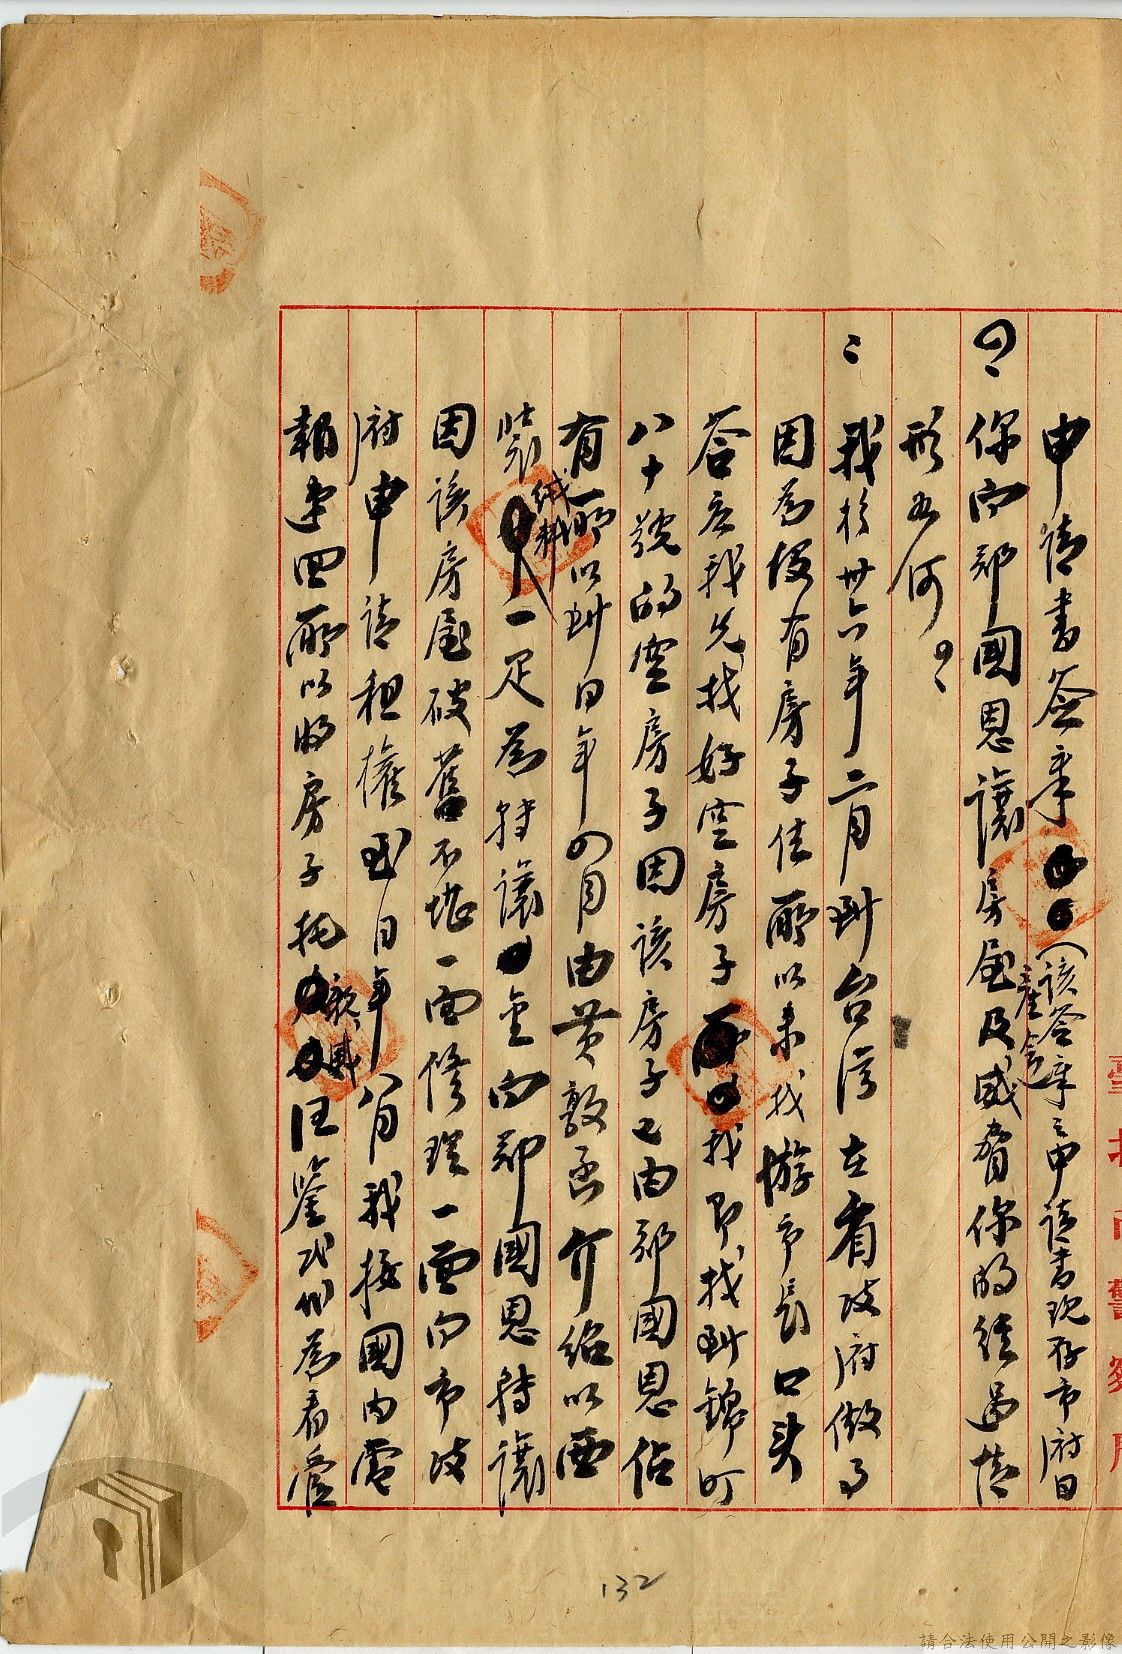 申請書簽章(該簽章之申請書現存市府日產室)
問、你向鄭國恩讓房屋及威脅你的經過情
形如何？
答、我於卅六年二月到台灣在省政府做事
因為沒有房子住所以來找游市長口头
答應我先找好空房子找即找到錦町
八十號的空房子因該房子已由鄭國恩佔
有所以到同年四月由黃敦丞介紹以西
裝絨料一疋為轉讓金向鄭國恩轉讓
因該房屋破舊不堪一面修理一面向市政
府申請租權至同年八月我接國內電
報速回所以將房子托敝戚汪鑒代為看管
臺北市警察局
132
請合法使用公開之影像